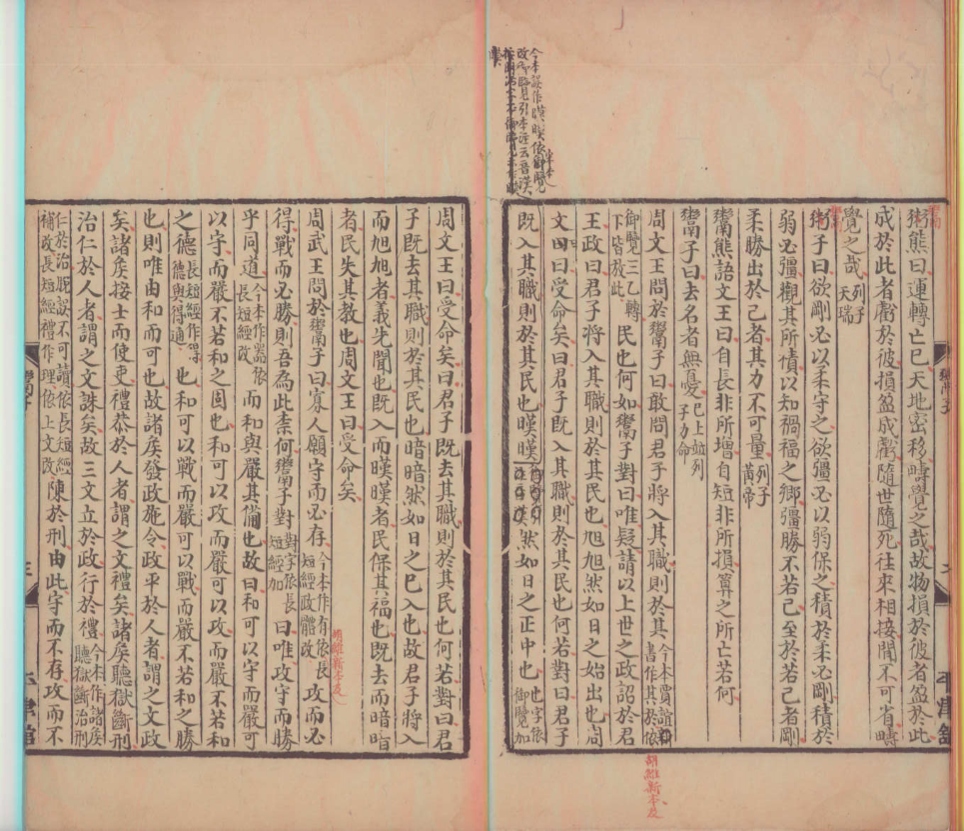 粥熊曰運轉亡已天地密移疇覺之哉故物損於彼者盈於此
成於此者虧於彼損盈成虧隨世隨死往來相接閒不可省疇
覺之哉列子天瑞
粥子曰欲剛必以柔守之欲彊必以弱保之積於柔必剛積於
弱必彊觀其所積以知禍福之鄉彊勝不若己至於若己者剛
柔勝出於己者其力不可量列子黃帝
鬻熊語文王曰自長非所增自短非所損算之所亡若何
鬻子曰去名者無憂已上竝列子力命
周文王問於鬻子曰敢問君子將入其職則於其今本賈誼書作其於依
御覽三乙轉下皆放此民也何如鬻子對曰唯疑請以上世之政詔於君
王政曰君子將入其職則於其民也旭旭然如日之始出也周
文王曰受命矣曰君子既入其職則於其民也何若對曰君子
既入其職則於其民也暵暵然如日之正中也也字依御覽加
周文王曰受命矣曰君子既去其職則於其民也何若對曰君
子既去其職則於其民也暗暗然如日之已入也故君子將入
而旭旭者義先聞也既入而暵暵者民保其福也既去而暗暗
者民失其教也周文王曰受命矣
周武王問於鬻子曰寡人願守而必存今本作有依長短經政體改攻而必
得戰而必勝則吾為此柰何鬻子對對字依長短經加曰唯攻守而勝
乎同道今本作器依長短經改而和與嚴其備也故曰和可以守而嚴可
以守而嚴不若和之固也和可以攻而嚴可以攻而嚴不若和
之德長短經作得德與得通也和可以戰而嚴可以戰而嚴不若和之勝
也則唯由和而可也故諸矦發政施令政平於人者謂之文政
矣諸矦接士而使吏禮恭於人者謂之文禮矣諸矦聽獄斷刑
治仁於人者謂之文誅矣故三文立於政行於禮今本作諸矦聽獄斷治刑
仁於治脫誤不可讀依長短經補改長短經禮作理依上文改陳於刑由此守而不存攻而不
鬻子
二
平津館
鬻子
三
平津館
胡維新本反
胡維新本反